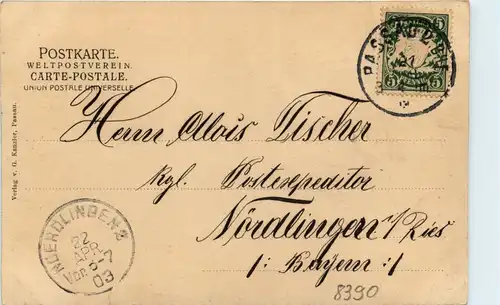 POSTKARTE.
WELTPOSTVEREIN.
CARTE-POSTALE.
UNION POSTALE UNIVERSELLE
Verlag v. G. Kanzler, Passau.
5 5
PASSAU 2
21
Herrn Alois Tischer
Kgl. Postexpeditor
Nördlingen i/Ries
/: Bayern :/
NOERDLINGEN 2
22
APR
Vor. 6-7
03
8390